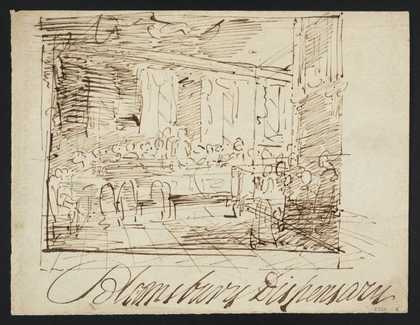 Bloomsbury Dispensary